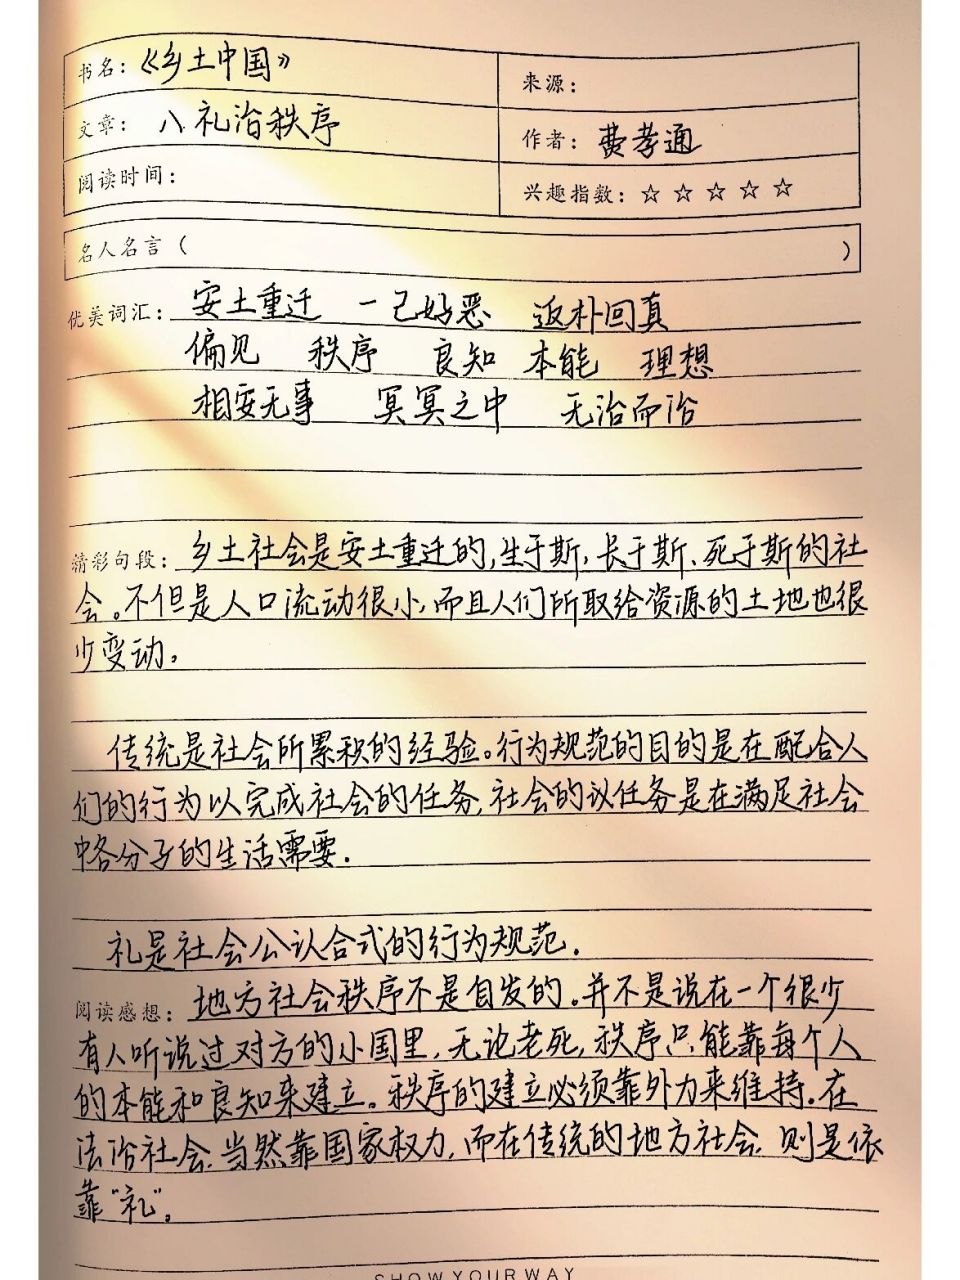 书名：《乡土中国》
来源：
文章：八、礼治秩序
作者：费孝通
阅读时间：
兴趣指数：☆☆☆☆☆
名人名言（ ）
优美词汇：安土重迁 一己好恶 返朴回真
偏见 秩序 良知 本能 理想
相安无事 冥冥之中 无治而治
精彩句段：乡土社会是安土重迁的，生于斯，长于斯、死于斯的社
会。不但是人口流动很小，而且人们所取给资源的土地也很
少变动。
传统是社会所累积的经验。行为规范的目的是在配合人
们的行为以完成社会的任务，社会的议任务是在满足社会
中各分子的生活需要.
礼是社会公认合式的行为规范.
阅读感想：地方社会秩序不是自发的。并不是说在一个很少
有人听说过对方的小国里，无论老死，秩序只能靠每个人
的本能和良知来建立。秩序的建立必须靠外力来维持.在
法治社会，当然靠国家权力，而在传统的地方社会，则是依
靠“礼”。
SHOW YOUR WAY